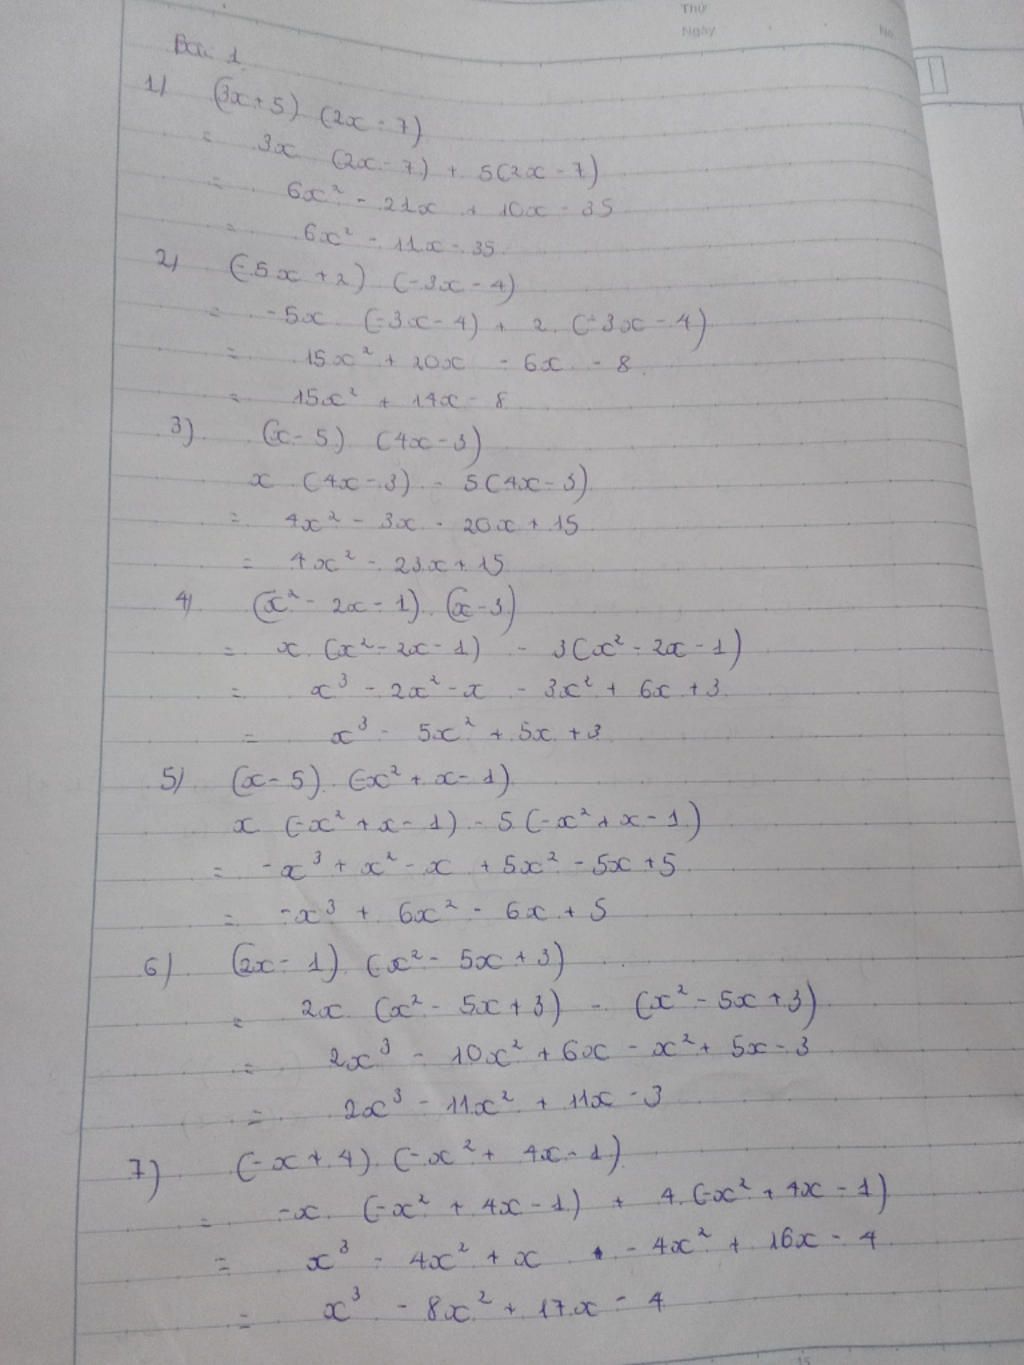 Thứ
Ngày
No.
Bài 1
1) (3x+5) (2x-7)
= 3x (2x-7) + 5(2x-7)
= 6x² - 21x + 10x - 35
= 6x² - 11x - 35
2) (-5x+2) (-3x-4)
= -5x. (-3x-4) + 2. (-3x-4)
= 15x² + 20x - 6x - 8
= 15x² + 14x - 8
3) (x-5) (4x-3)
x (4x-3) - 5(4x-3)
= 4x² - 3x - 20x + 15
= 4x² - 23x + 15
4) (x² - 2x - 1). (x-3)
= x. (x² - 2x - 1) - 3(x² - 2x - 1)
= x³ - 2x² - x - 3x² + 6x + 3
= x³ - 5x² + 5x + 3
5) (x-5). (-x² + x - 1)
x (-x² + x - 1) - 5 (-x² + x - 1)
= -x³ + x² - x + 5x² - 5x + 5
= -x³ + 6x² - 6x + 5
6) (2x - 1) (x² - 5x + 3)
= 2x (x² - 5x + 3) - (x² - 5x + 3)
= 2x³ - 10x² + 6x - x² + 5x - 3
= 2x³ - 11x² + 11x - 3
7) (-x + 4). (-x² + 4x - 1)
= -x. (-x² + 4x - 1) + 4. (-x² + 4x - 1)
= x³ - 4x² + x - 4x² + 16x - 4
= x³ - 8x² + 17x - 4
15